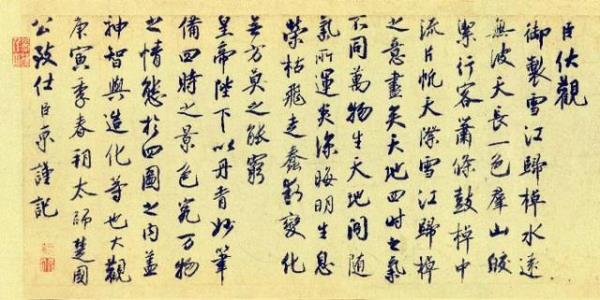 臣伏觀
御製雪江歸棹水遠
無波天長一色群山皎
潔行客蕭條鼓棹中
流片帆天際雪江歸棹
之意盡矣天地四時之氣
不同萬物生天地間隨
氣所運炎涼晦明生息
榮枯飛走蠢動變化
無方莫之能窮
皇帝陛下以丹青妙筆
備四時之景色究萬物
之情態於四圖之內蓋
神智與造化等也大觀
庚寅季春朔太師楚國
公致仕臣京謹記